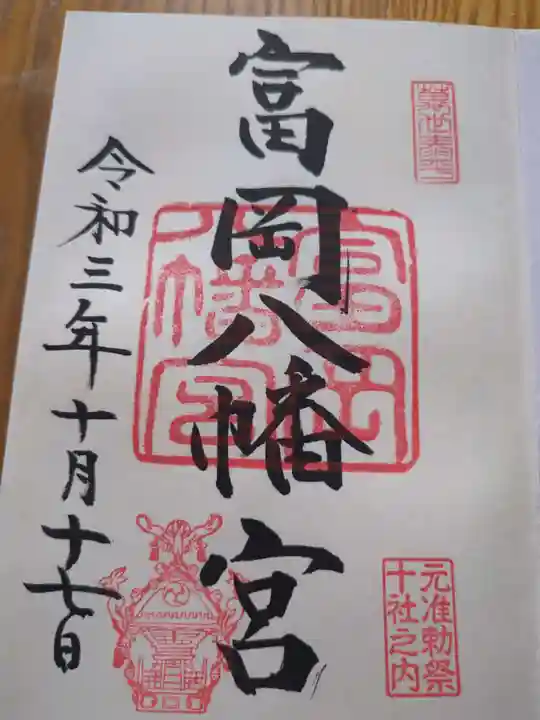 富岡八幡宮
令和三年十月十七日
元准勅祭
十社之内
富岡
八幡宮